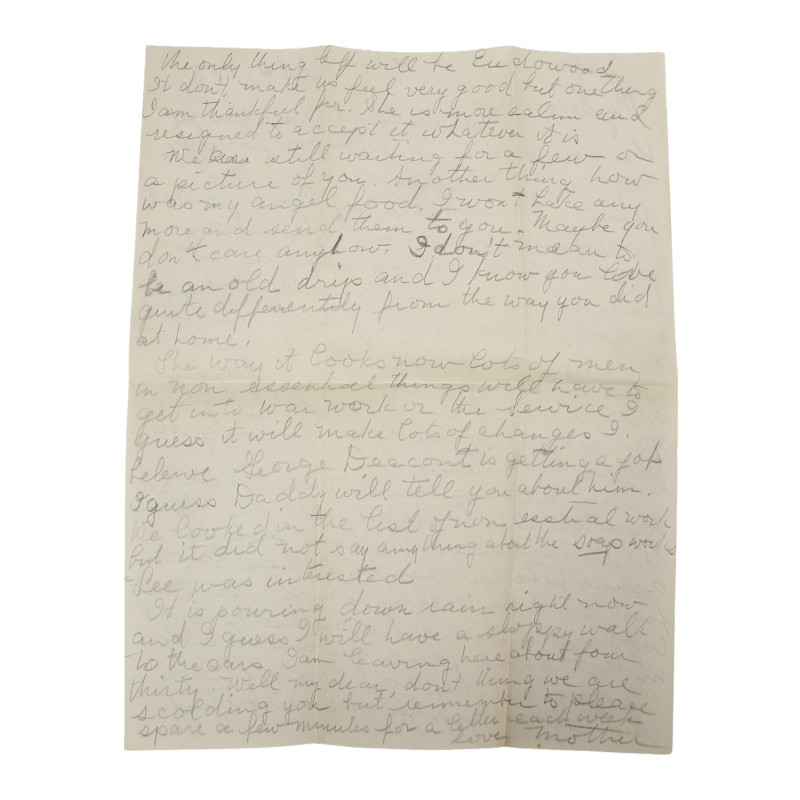 the only thing left will be Eudowood
It don't make us feel very good but one thing
I am thankful for. She is more calm and
resigned to accept it whatever it is
We are still waiting for a few or
a picture of you. Another thing how
was my angel food. I won't bake any
more and send them to you. Maybe you
don't care anyhow. I don't mean to
be an old drip and I know you live
quite differently from the way you did
at home.
The way it looks now lots of men
in non essential things will have to
get into war work or the Service I
guess it will make lots of changes I.
beleive George Deacont is getting a job
I guess Daddy will tell you about him.
We looked in the list of non esstial work
but it did not say any thing about the soap works
Lee was interested
It is pouring down rain right now
and I guess I will have a sloppy walk
to the cars I am leaving here about four
thirty. Well my dear, don't thing we are
scolding you but remember to please
spare a few minutes for a letter each week
Love Mother